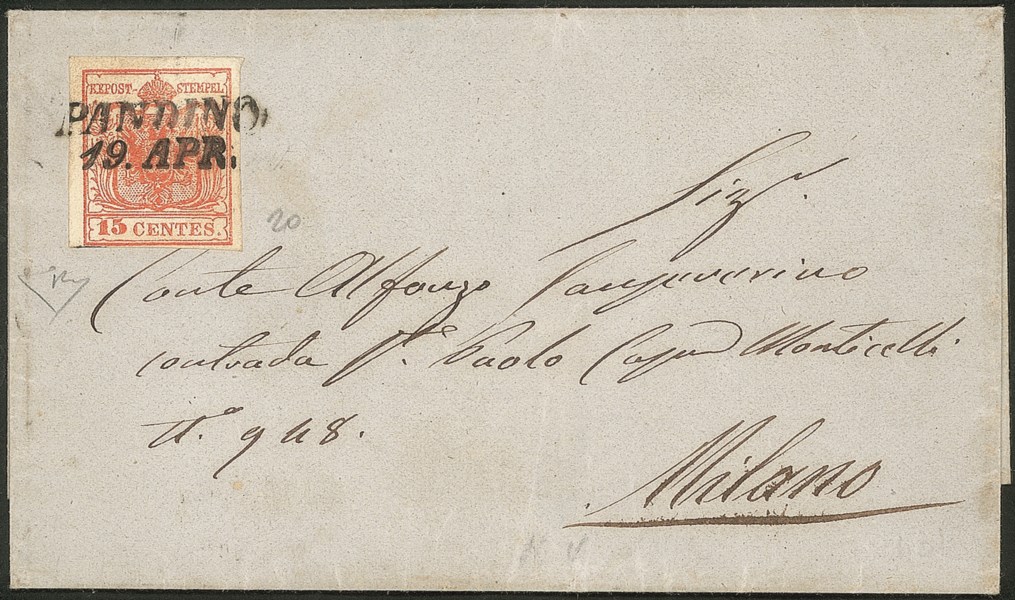 KKPOST-STEMPEL
PANDINO
19. APR.
15 CENTES.
20
Sigr.
Conte Alfonzo Sanseverino
contrada S. Paolo Casa Monticelli
N.° 948.
Milano